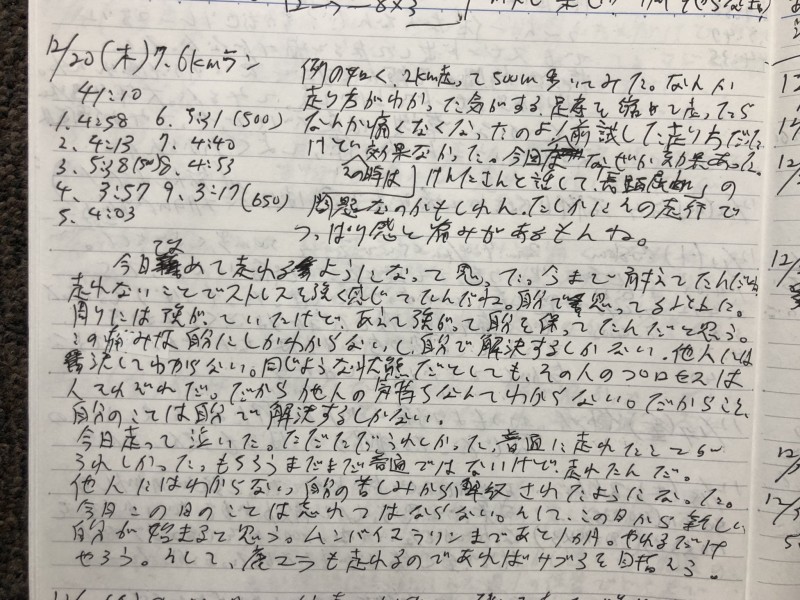 12/20(木) 7.6kmラン
41:10
1. 4:58 6. 5:31(500)
2. 4:13 7. 4:40
3. 5:38(500) 8. 4:53
4. 3:57 9. 3:17(650)
5. 4:03
例の如く、2km走って500m歩いてみた。なんか
走り方がわかった気がする。足幅を縮めて走ったら
なんか痛くなくなったのよ。前試した走り方だった
けど効果なかった。今回はなぜか効果あった。
この時は
けんたさんと話して、長距離 の
問題なのかもしれん。たしかにその走行で
つっぱり感と痛みがあるもんね。
今日改めて走れるようになって思った。今まで耐えてたんだね
走れないことでストレスを強く感じてたんだね。自分で思ってる以上に。
周りには強がっていたけど、あえて強がって自分を保ってたんだと思う。
この痛みは自分にしかわからないし、自分で解決するしかない。他人には
決してわからない。同じような状態だとしても、その人のプロセスは
人それぞれだ。だから他人の気持ちなんてわからない。だからこそ、
自分のことは自分で解決するしかない。
今日走って泣いた。ただただうれしかった。普通に走れたことが
うれしかった。もちろんまだまだ普通ではないけど、走れたんだ。
他人にはわからない、自分の苦しみから解放されたようになった。
今日この日のことは忘れてはならない。そして、この日から新しい
自分が始まると思う。ムンバイマラソンまであと1カ月。やれるだけ
やろう。そして、 マラも走れるのであればサブ3を目指そう。